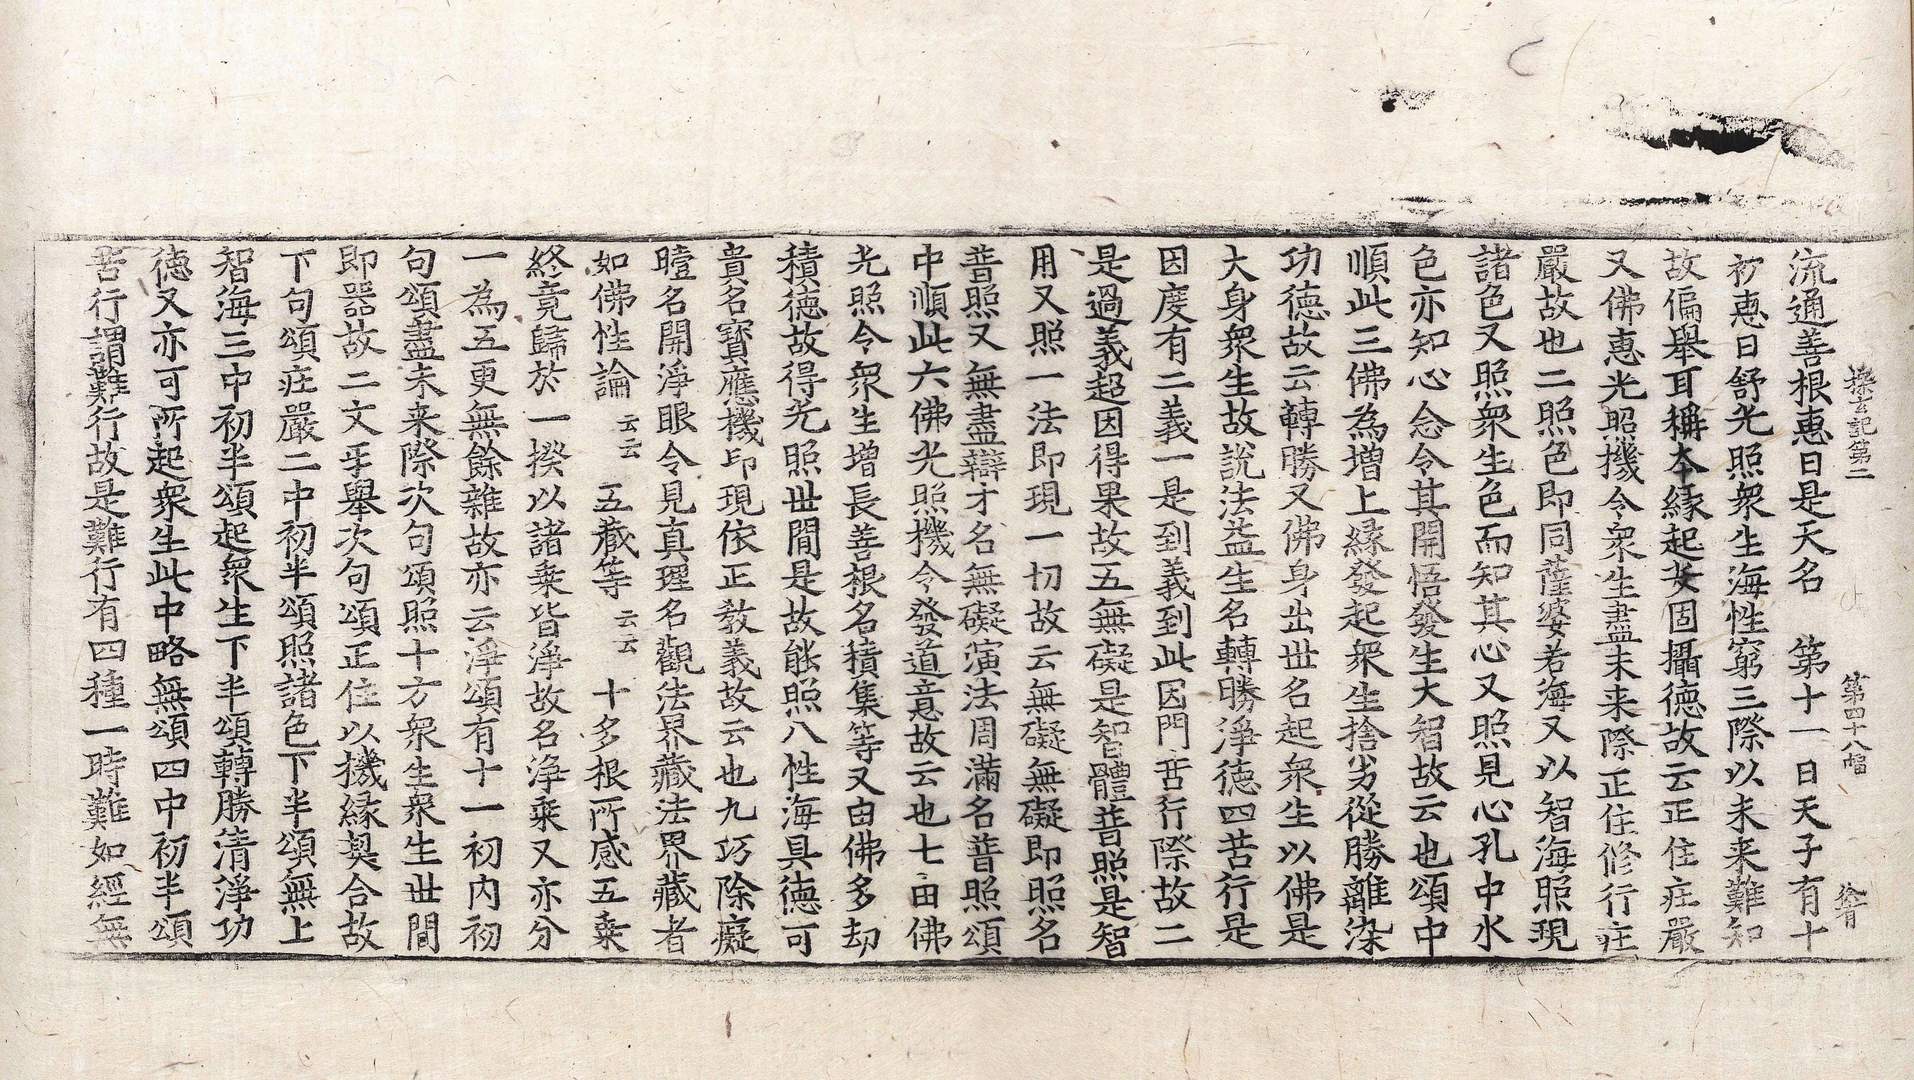 探玄記第二　第四十八幅　
流通善根惠日是天名　第十一日天子有十
初惠日舒光照衆生海性窮三際以未来難知
故偏舉耳稱本縁起妄固攝德故云正住莊嚴
又佛惠光照機令衆生盡未来際正住修行莊
嚴故也二照色即同薩婆若海又以智海照現
諸色又照衆生色而知其心又照見心孔中水
色亦知心念令其開悟發生大智故云也頌中
順此三佛為增上縁發起衆生捨劣從勝離染
功德故云轉勝又佛身出世名起衆生以佛是
大身衆生故說法益生名轉勝淨德四苦行是
因度有二義一是到義到此因門苦行際故二
是過義超因得果故五無礙是智體普照是智
用又照一法即現一切故云無礙無礙即照名
普照又無盡辯才名無礙演法周滿名普照頌
中順此六佛光照機令發道意故云也七由佛
光照令衆生增長善根名積集等又由佛多劫
積德故得光照世間是故能照八性海具德可
貴名寶應機印現依正教義故云也九巧除癡
曀名開淨眼令見真理名觀法界藏法界藏者
如佛性論云云　五藏等云云　十多根所感五乗
終竟歸於一揆以諸乗皆淨故名淨乗又亦分
一為五更無餘雜故亦云淨頌有十一初内初
句頌盡未来際次句頌照十方衆生衆生世間
即器故二文乎舉次句頌正住以機縁契合故
下句頌莊嚴二中初半頌照諸色下半頌無上
智海三中初半頌起衆生下半頌轉勝清淨功
德又亦可所起衆生此中略無頌四中初半頌
苦行謂難行故是難行有四種一時難如經無